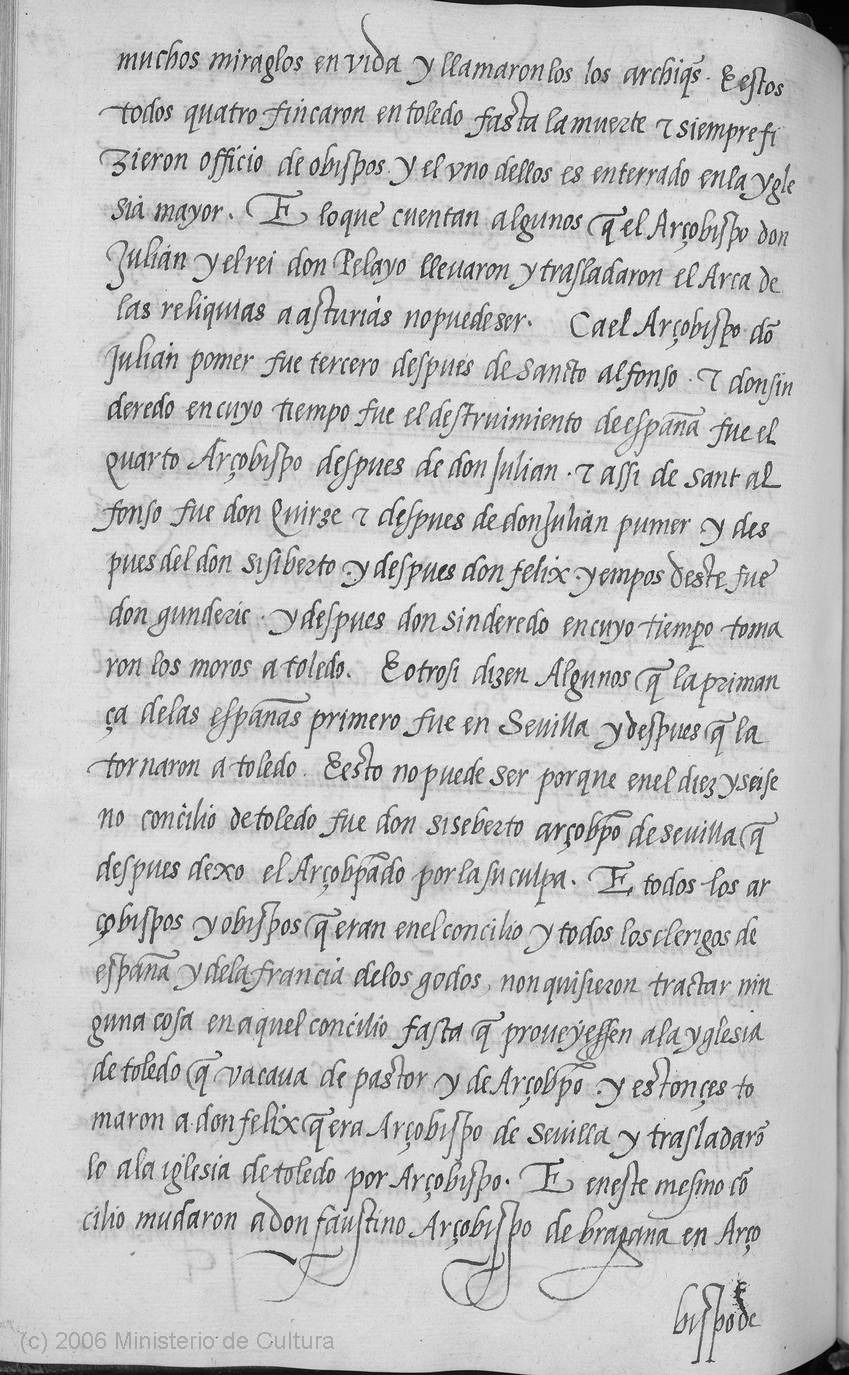 muchos miraglos en vida y llamaron los los archiqs̃. E estos
todos quatro fincaron en toledo fasta la muerte ⁊ siempre fi
zieron officio de obispos. y el vno dellos es enterrado en la ygle
sia mayor. E lo que cuentan algunos q̃ el Arçobispo don
Julian y el rei don Pelayo lleuaron y trasladaron el Arca de
las reliquias a asturias no puede ser. Ca el Arçobispo dõ
Julian pomer fue tercero despues de Sancto alfonso. ⁊ don sin
deredo en cuyo tiempo fue el destruimiento de españa fue el
quarto Arçobispo despues de don Julian. ⁊ assi de Sant al
fonso fue don Quirze ⁊ despues de don Julian pumer y des
pues del don sisiberto. y despues don felix. y empos deste fue
don gunderic. y despues don sinderedo en cuyo tiempo toma
ron los moros a toledo. E otrosi dizen Algunos q̃ la priman
ça de las españas primero fue en Sevilla y despues q̃ la
tornaron a toledo. E esto no puede ser porque en el diez y seise
no concilio de toledo fue don siseberto arçobp̃o de sevilla q̃
despues dexo el Arçobp̃ado por la su culpa. E todos los ar
çobispos y obispos q̃ eran en el concilio y todos los clerigos de
españa y de la francia de los godos, non quisieron tractar nin
guna cosa en aquel concilio fasta q̃ proveyessen a la yglesia
de toledo q̃ vacaua de pastor y de Arçobp̃o. y estonçes to
maron a don felix q̃ era Arçobispo de Sevilla y trasladarõ
lo a la iglesia de toledo por Arçobispo. E en este mesmo cõ
cilio mudaron a don faustino Arçobispo de bragana en Arço
bispo de
(c) 2006 Ministerio de Cultura